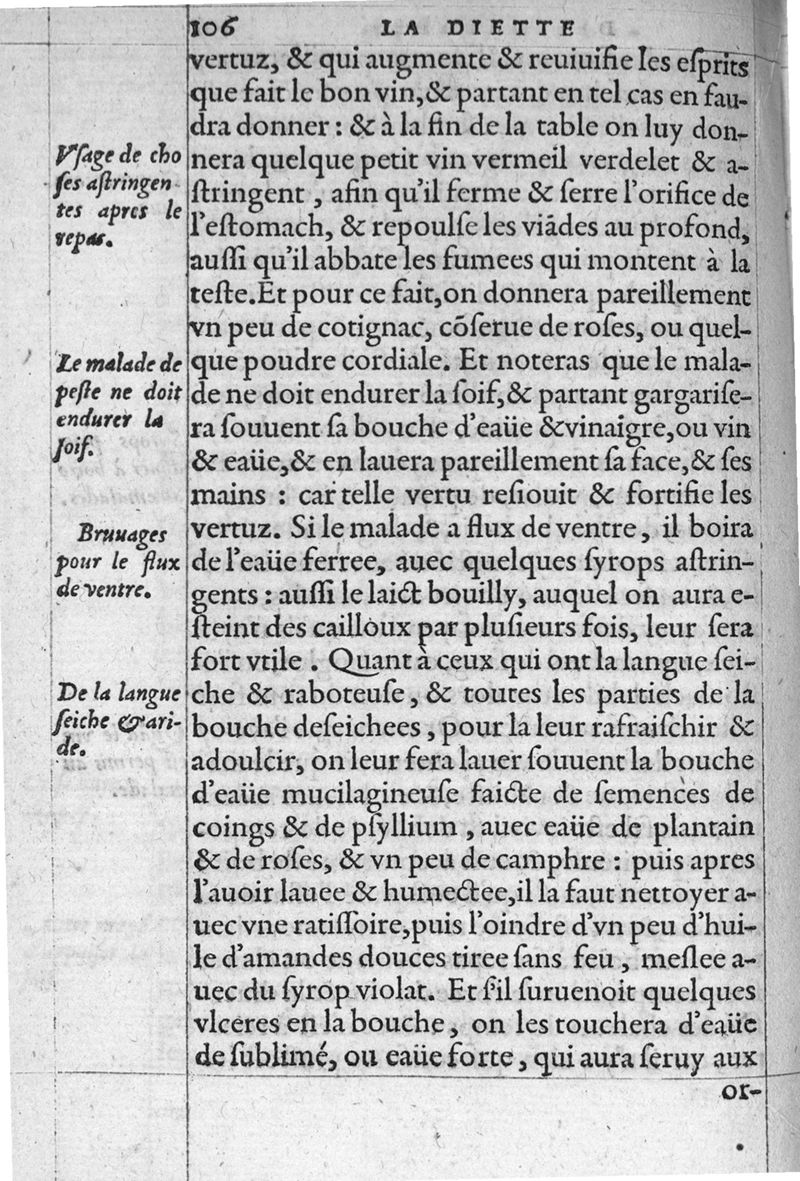 106 LA DIETTE
vertuz, & qui augmente & reuiuifie les eſprits
que fait le bon vin, & partant en tel cas en fau-
dra donner : & à la fin de la table on luy don-
nera quelque petit vin vermeil verdelet & a-
ſtringent , afin qu'il ferme & ſerre l'orifice de
l'eſtomach, & repoulſe les viādes au profond,
auſſi qu'il abbate les fumees qui montent à la
teſte. Et pour ce fait, on donnera pareillement
vn peu de cotignac, cōſerue de roſes, ou quel-
que poudre cordiale. Et noteras que le mala-
de ne doit endurer la ſoif, & partant gargariſe-
ra ſouuent ſa bouche d'eaüe & vinaigre, ou vin
& eaüe, & en lauera pareillement ſa face, & ſes
mains : car telle vertu reſiouit & fortifie les
vertuz. Si le malade a flux de ventre, il boira
de l'eaüe ferree, auec quelques ſyrops aſtrin-
gents : auſſi le laict bouilly, auquel on aura e-
ſteint des cailloux par pluſieurs fois, leur ſera
fort vtile . Quant à ceux qui ont la langue ſei-
che & raboteuſe, & toutes les parties de la
bouche deſeichees, pour la leur rafraiſchir &
adoulcir, on leur fera lauer ſouuent la bouche
d'eaüe mucilagineuſe faicte de ſemences de
coings & de pſyllium , auec eaüe de plantain
& de roſes, & vn peu de camphre : puis apres
l'auoir lauee & humectee, il la faut nettoyer a-
uec vne ratiſſoire, puis l'oindre d'vn peu d'hui-
le d'amandes douces tiree ſans feu , meſlee a-
uec du ſyrop violat. Et ſ'il ſuruenoit quelques
vlceres en la bouche, on les touchera d'eaüe
de ſublimé, ou eaüe forte, qui aura ſeruy aux
or-
Vſage de cho
ſes aſtringen
tes apres le
repas.
Le malade de
peſte ne doit
endurer la
ſoif.
Bruuages
pour le flux
de ventre.
De la langue
ſeiche & ari-
de.